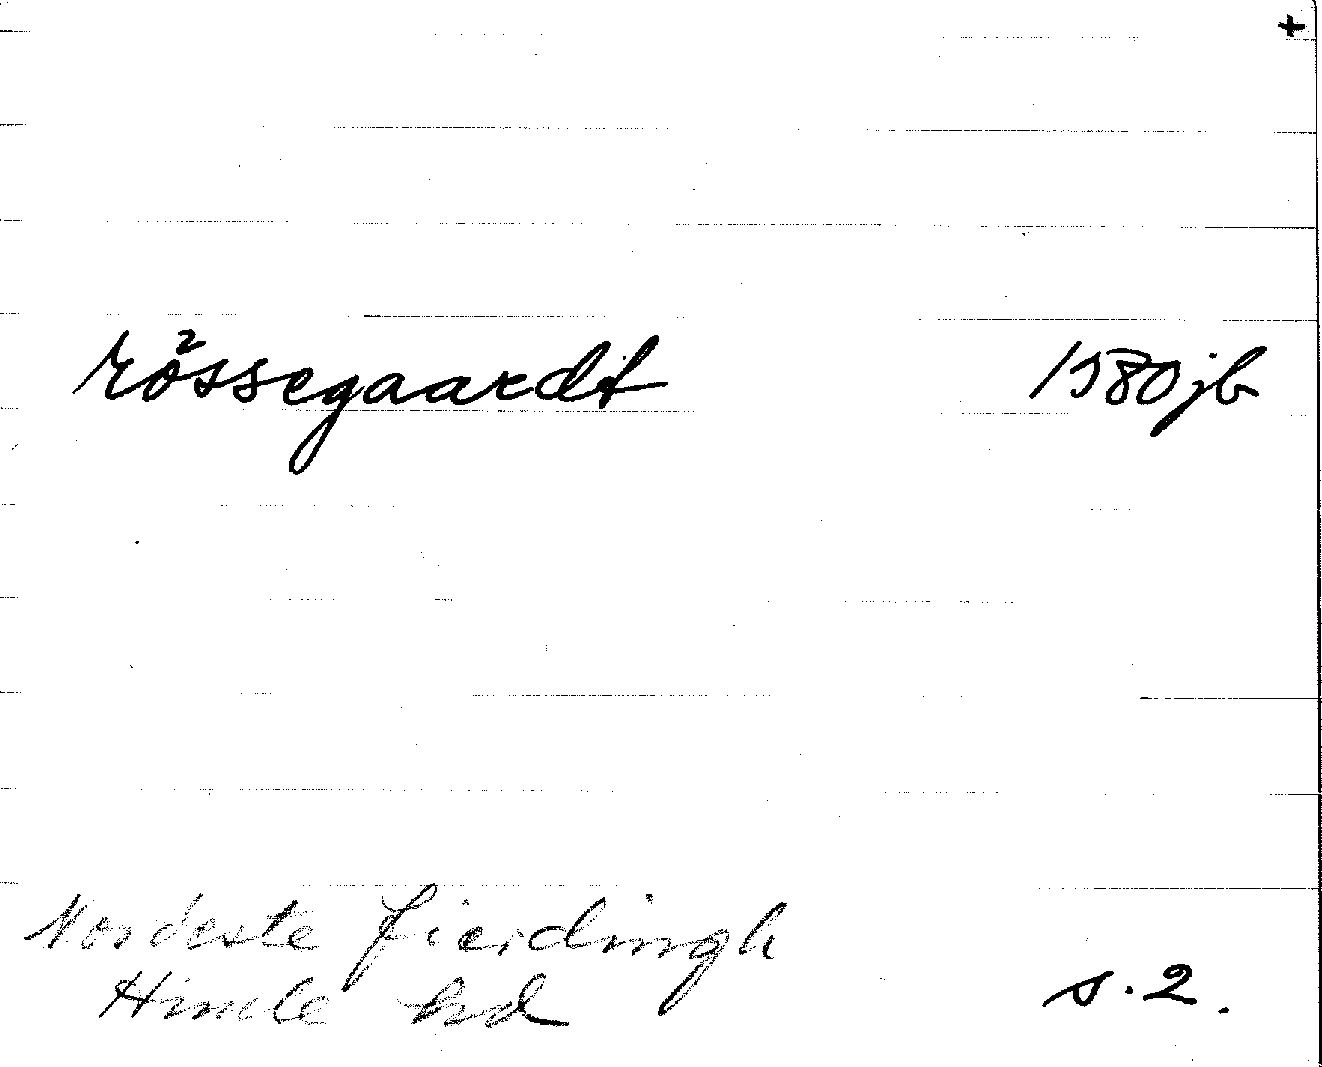 +
rössegaardt 1580 jb
Nordeste fierdingh
Himle hd s. 2.